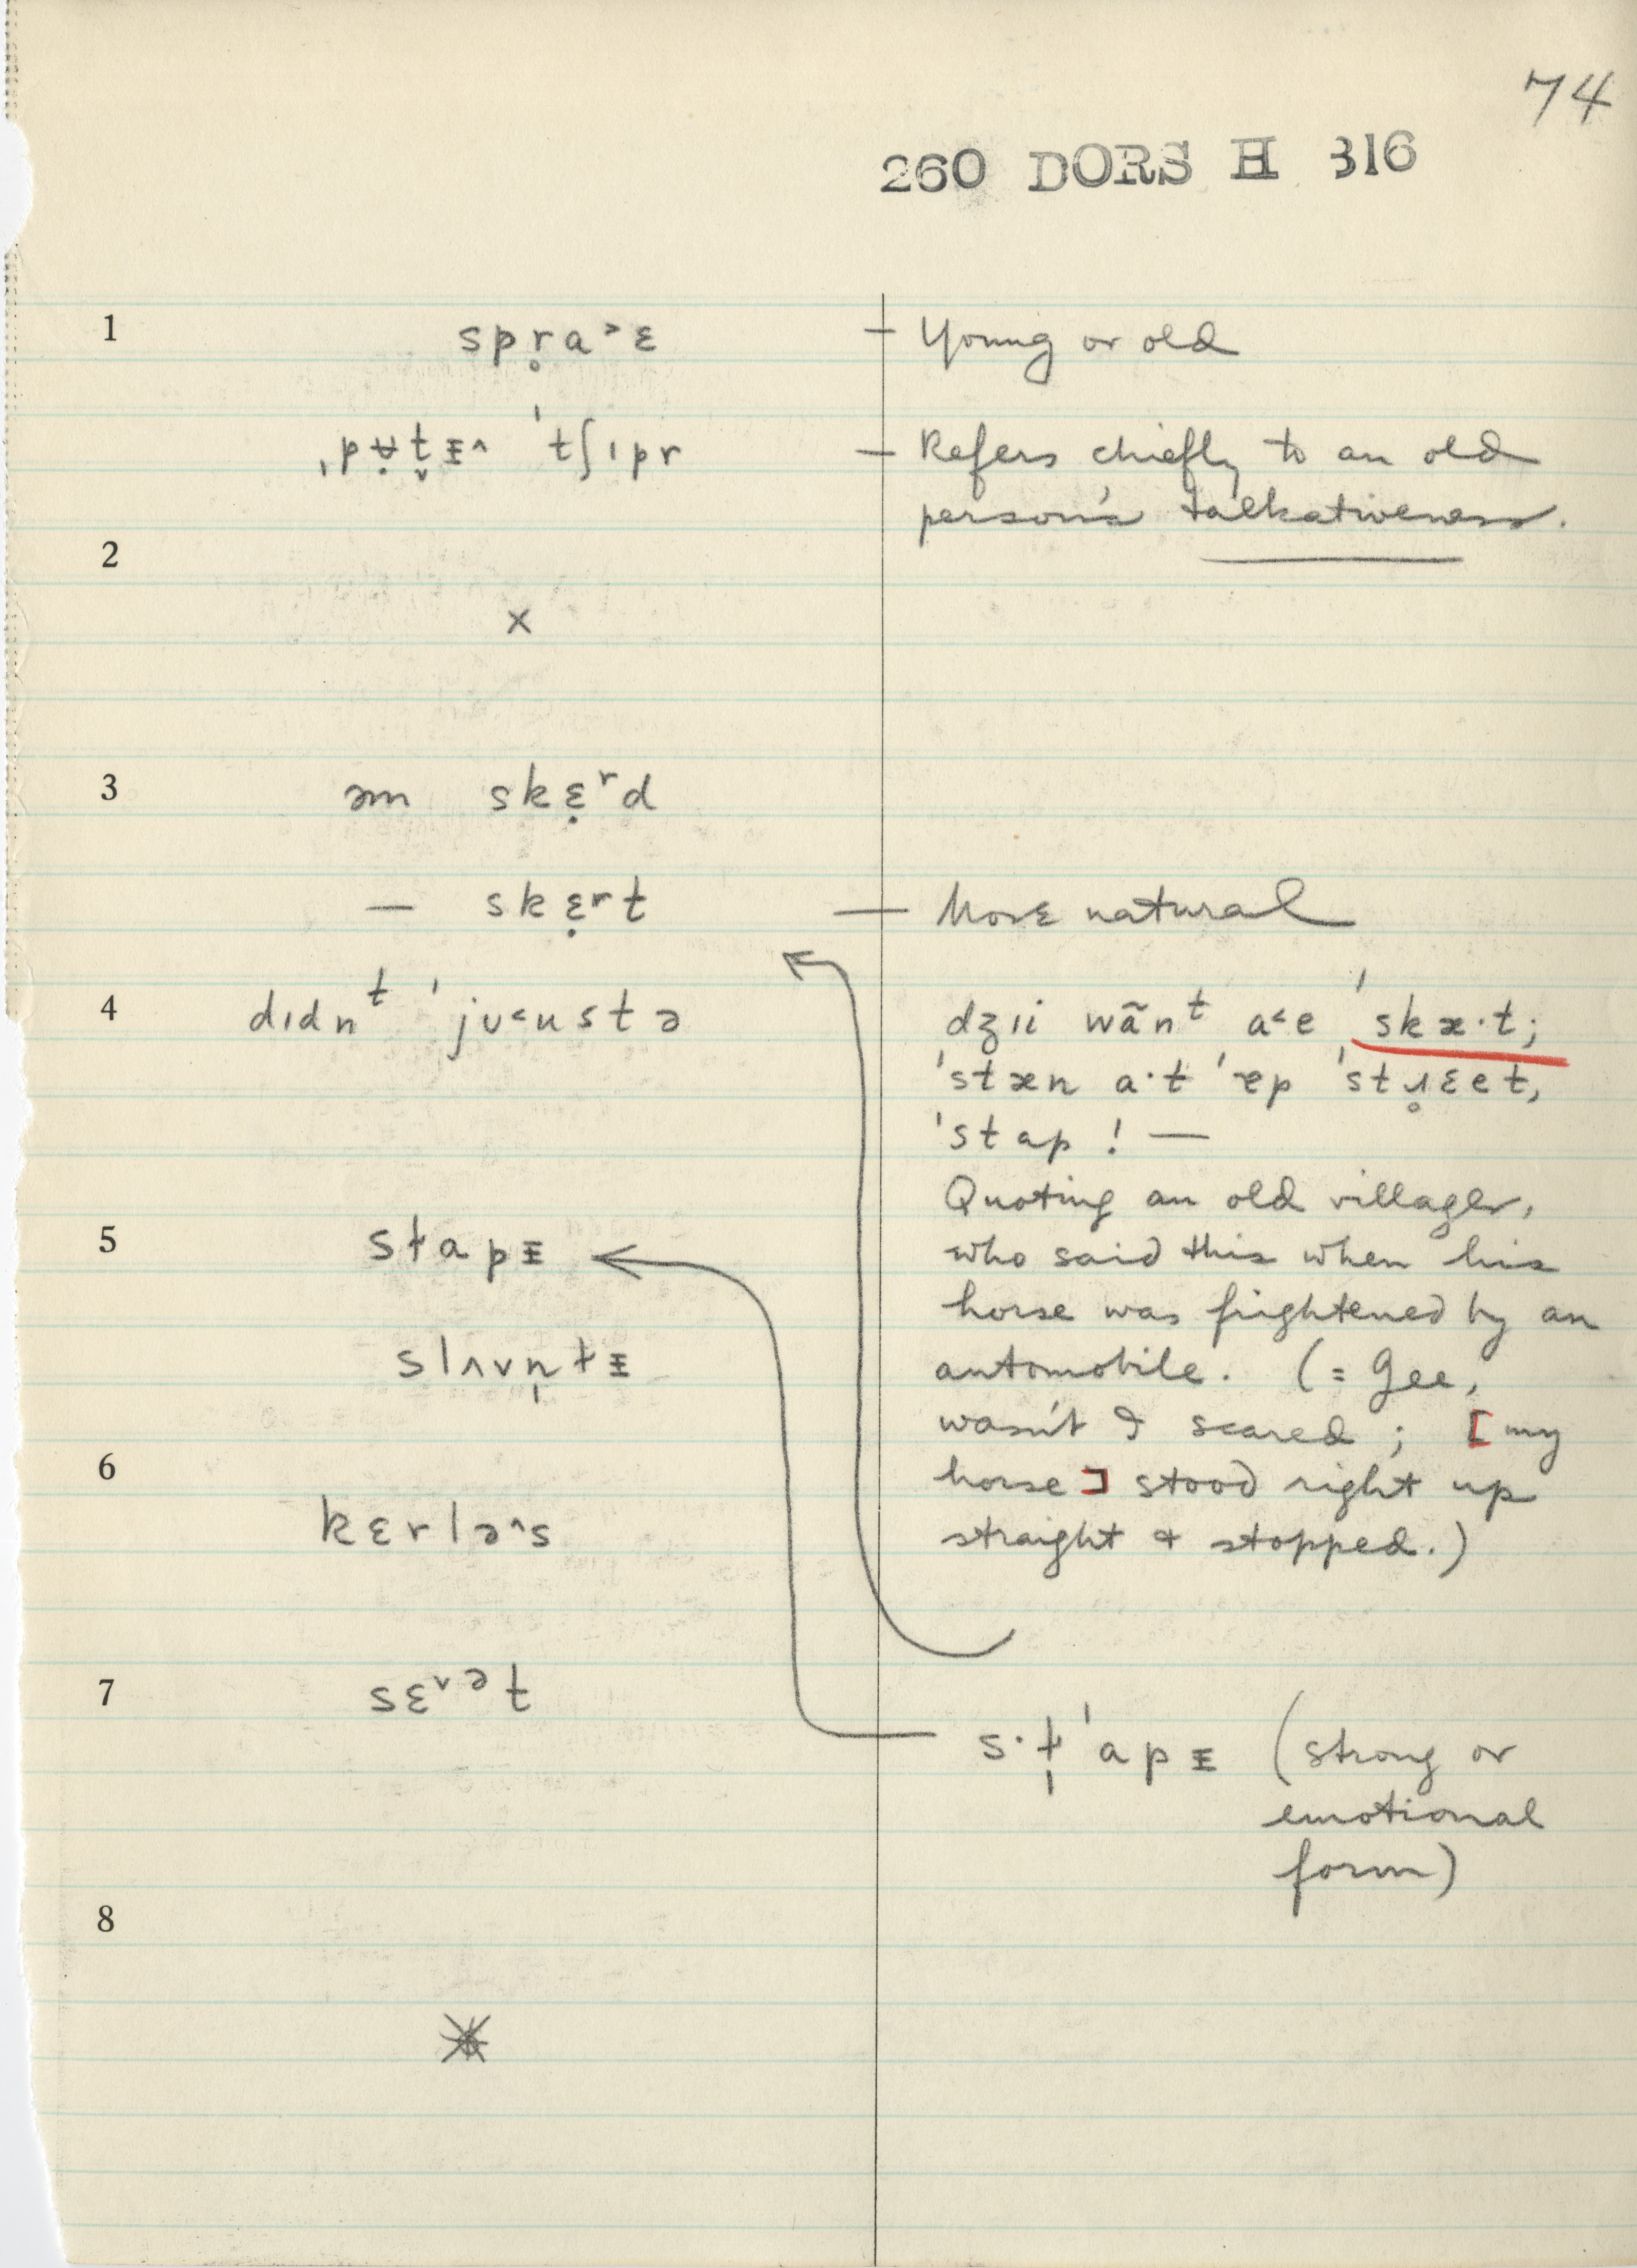 74
260 DORS H 316
1 spr̥a˃ɛ — Young or old
ˌpʉ̣t̬ɪ̵˄ ˈtʃɪpr — Refers chiefly to an old
person's talkativeness.
2
×
3 əm skɛ̣ʳd
— skɛ̣ʳt — More natural
4 dɪdnᵗ ˈjʊ˂ustə
dʒɪi wɑ̃nᵗ a˂e ˈskæ·t;
ˈstæn a·t ˈɐp ˈstɹ̥ɛet,
ˈstap! —
Quoting an old villager,
who said this when his
horse was frightened by an
automobile. (= Gee,
wasn't I scared; [my
horse] stood right up
straight & stopped.)
5 stapɪ̵
slʌvn̩tɪ̵
6
kɛrlə˄s
7 sɛ˅ət
s·t̩ˈapɪ̵ (strong or
emotional
form)
8